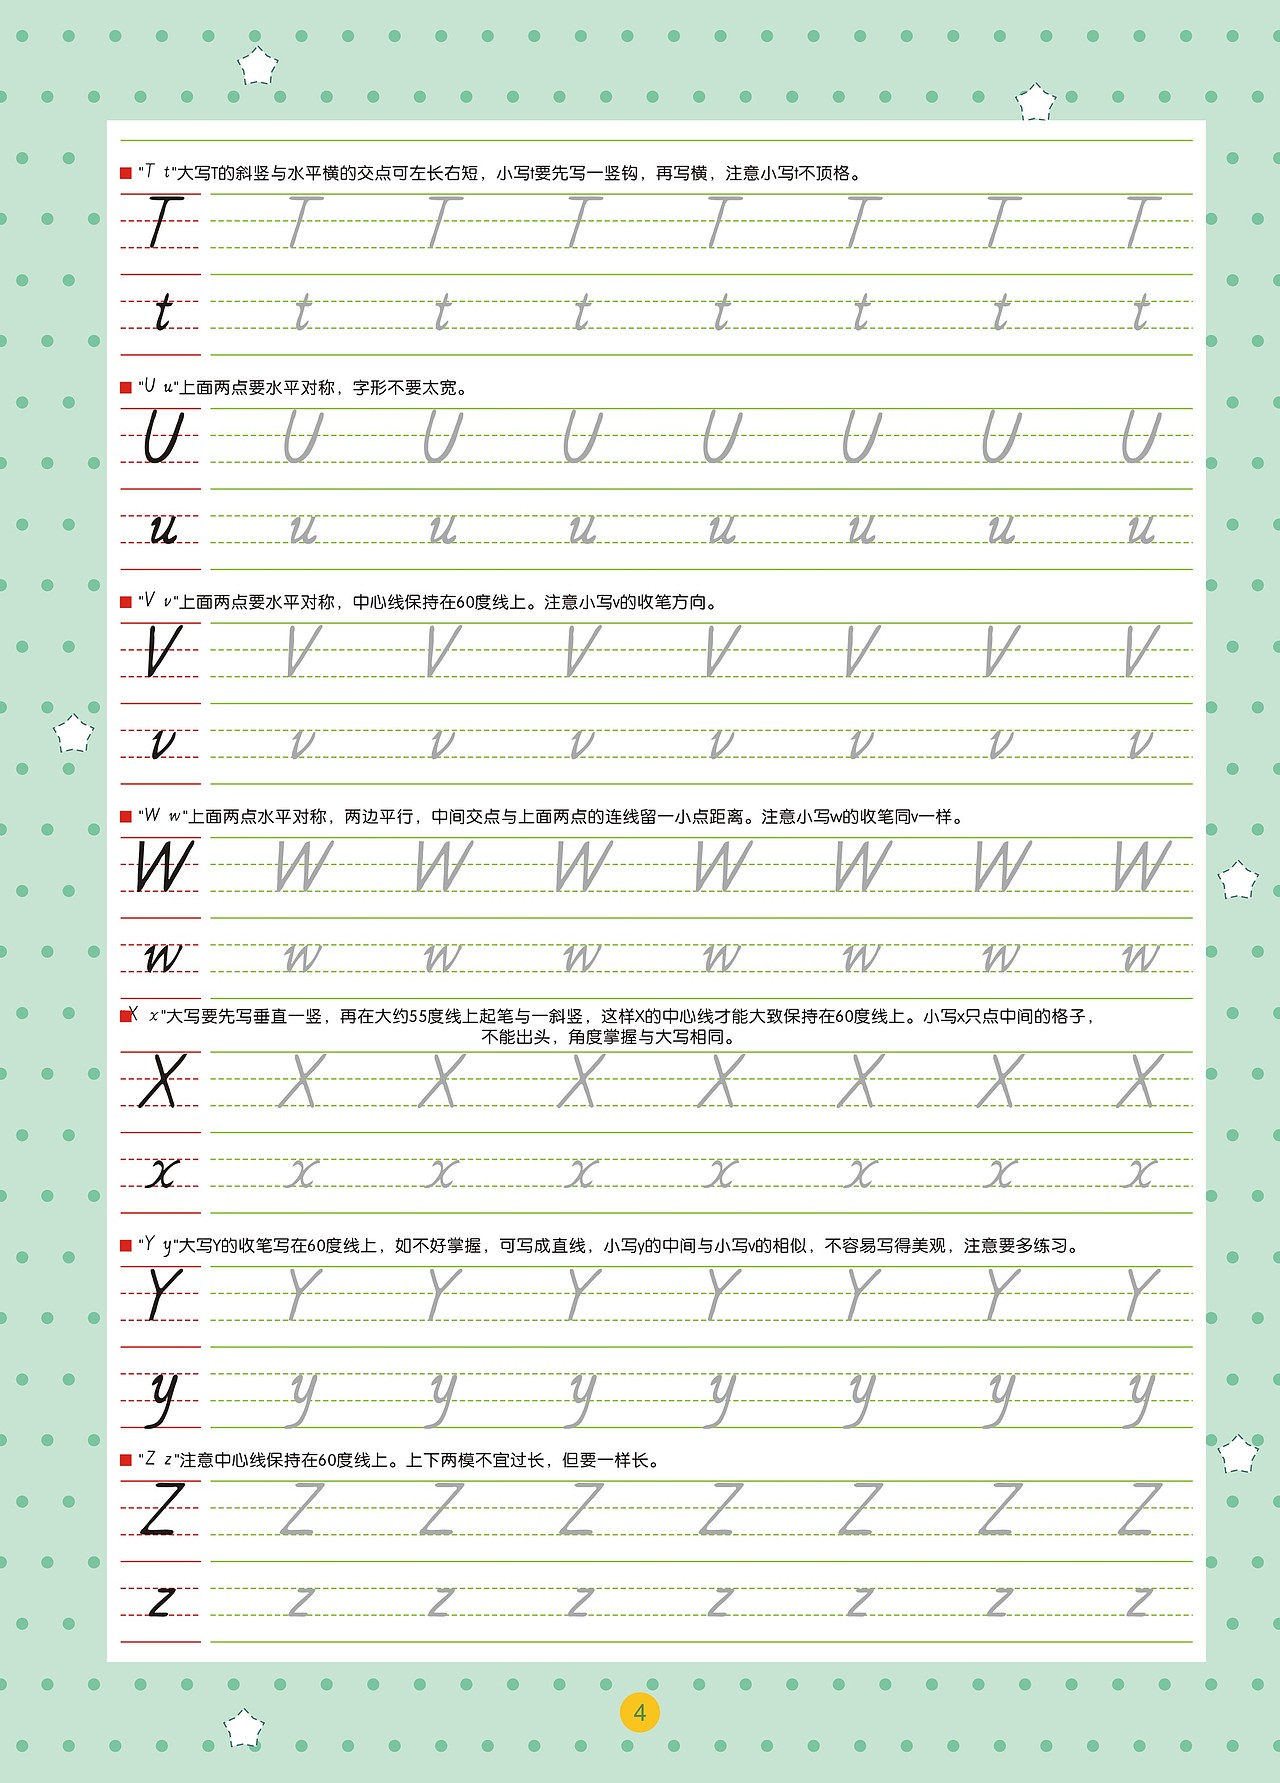 "T t"大写T的斜竖与水平横的交点可左长右短，小写t要先写一竖钩，再写横，注意小写t不顶格。
T T T T T T T T
t t t t t t t t
"U u"上面两点要水平对称，字形不要太宽。
U U U U U U U U
u u u u u u u u
"V v"上面两点要水平对称，中心线保持在60度线上。注意小写v的收笔方向。
V V V V V V V V
v v v v v v v v
"W w"上面两点水平对称，两边平行，中间交点与上面两点的连线留一小点距离。注意小写w的收笔同v一样。
W W W W W W W W
w w w w w w w w
X x"大写要先写垂直一竖，再在大约55度线上起笔与一斜竖，这样X的中心线才能大致保持在60度线上。小写x只点中间的格子，
不能出头，角度掌握与大写相同。
X X X X X X X X
x x x x x x x x
"Y y"大写Y的收笔写在60度线上，如不好掌握，可写成直线，小写y的中间与小写v的相似，不容易写得美观，注意要多练习。
Y Y Y Y Y Y Y Y
y y y y y y y y
"Z z"注意中心线保持在60度线上。上下两模不宜过长，但要一样长。
Z Z Z Z Z Z Z Z
z z z z z z z z
4